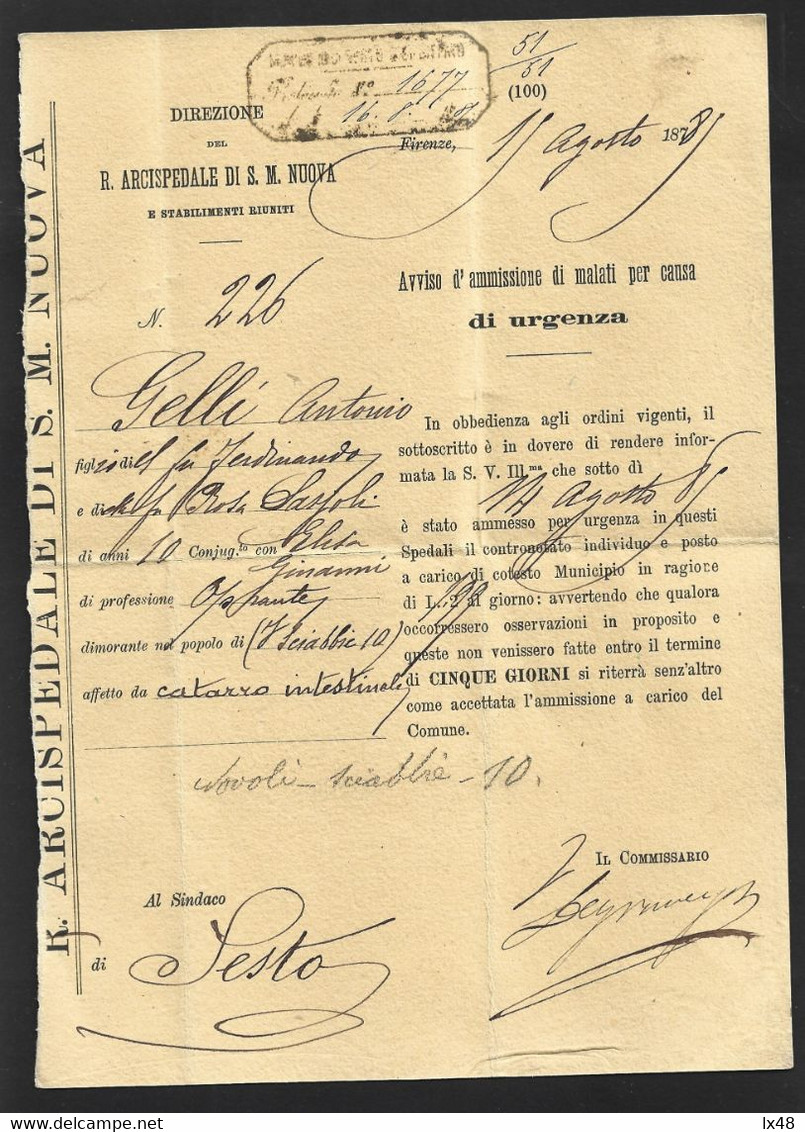 R. ARCISPEDALE DI S. M. NUOVA
1677
16. 8.
51/51
(100)
DIREZIONE
DEL
R. ARCISPEDALE DI S. M. NUOVA
E STABILIMENTI RIUNITI
Firenze, 15 Agosto 1885
N. 226
Avviso d'ammissione di malati per causa
di urgenza
Gelli Antonio
figlio di fu Ferdinando
e di fu Rosa
di anni 10 Conjug.to con Elisa
Ginanni
di professione
dimorante nel popolo di (V Sciabbie 10)
affetto da catarro intestinale
In obbedienza agli ordini vigenti, il
sottoscritto è in dovere di rendere infor-
mata la S. V. Ill.ma che sotto dì
14 Agosto 85
è stato ammesso per urgenza in questi
Spedali il contronotato individuo e posto
a carico di cotesto Municipio in ragione
di L. 2 al giorno: avvertendo che qualora
occorressero osservazioni in proposito e
queste non venissero fatte entro il termine
di CINQUE GIORNI si riterrà senz'altro
come accettata l'ammissione a carico del
Comune.
Novoli - Sciabbie - 10.
IL COMMISSARIO
Al Sindaco
di Sesto
lx48